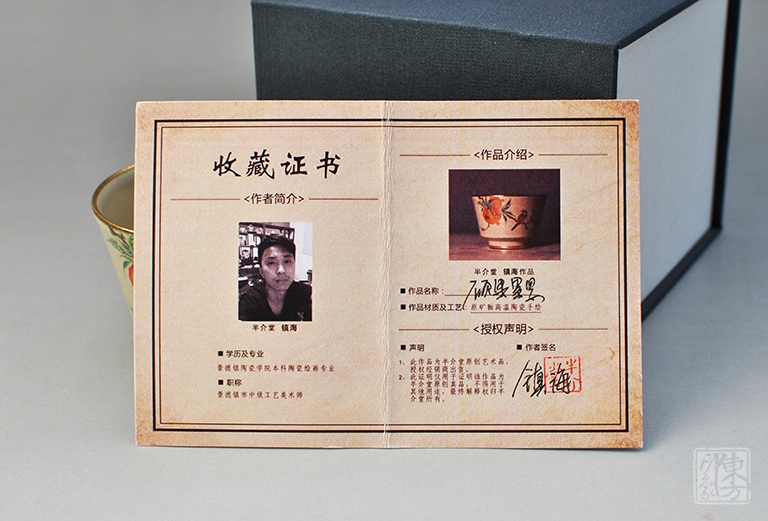 收藏证书
<作者简介>
半介堂 镇海
■ 学历及专业
景德镇陶瓷学院本科陶瓷绘画专业
■ 职称
景德镇市中级工艺美术师
<作品介绍>
半介堂 镇海作品
■ 作品名称:
■ 作品材质及工艺: 原矿釉高温陶瓷手绘
<授权声明>
■ 声明
1、此作品为半介堂原创艺术品,
授权经销商出售。
2、此证明仅用于证明该作品为
半介堂原创真品,不得用于
其他用途,最终解释权归半
介堂所有。
■ 作者签名
镇海
东方